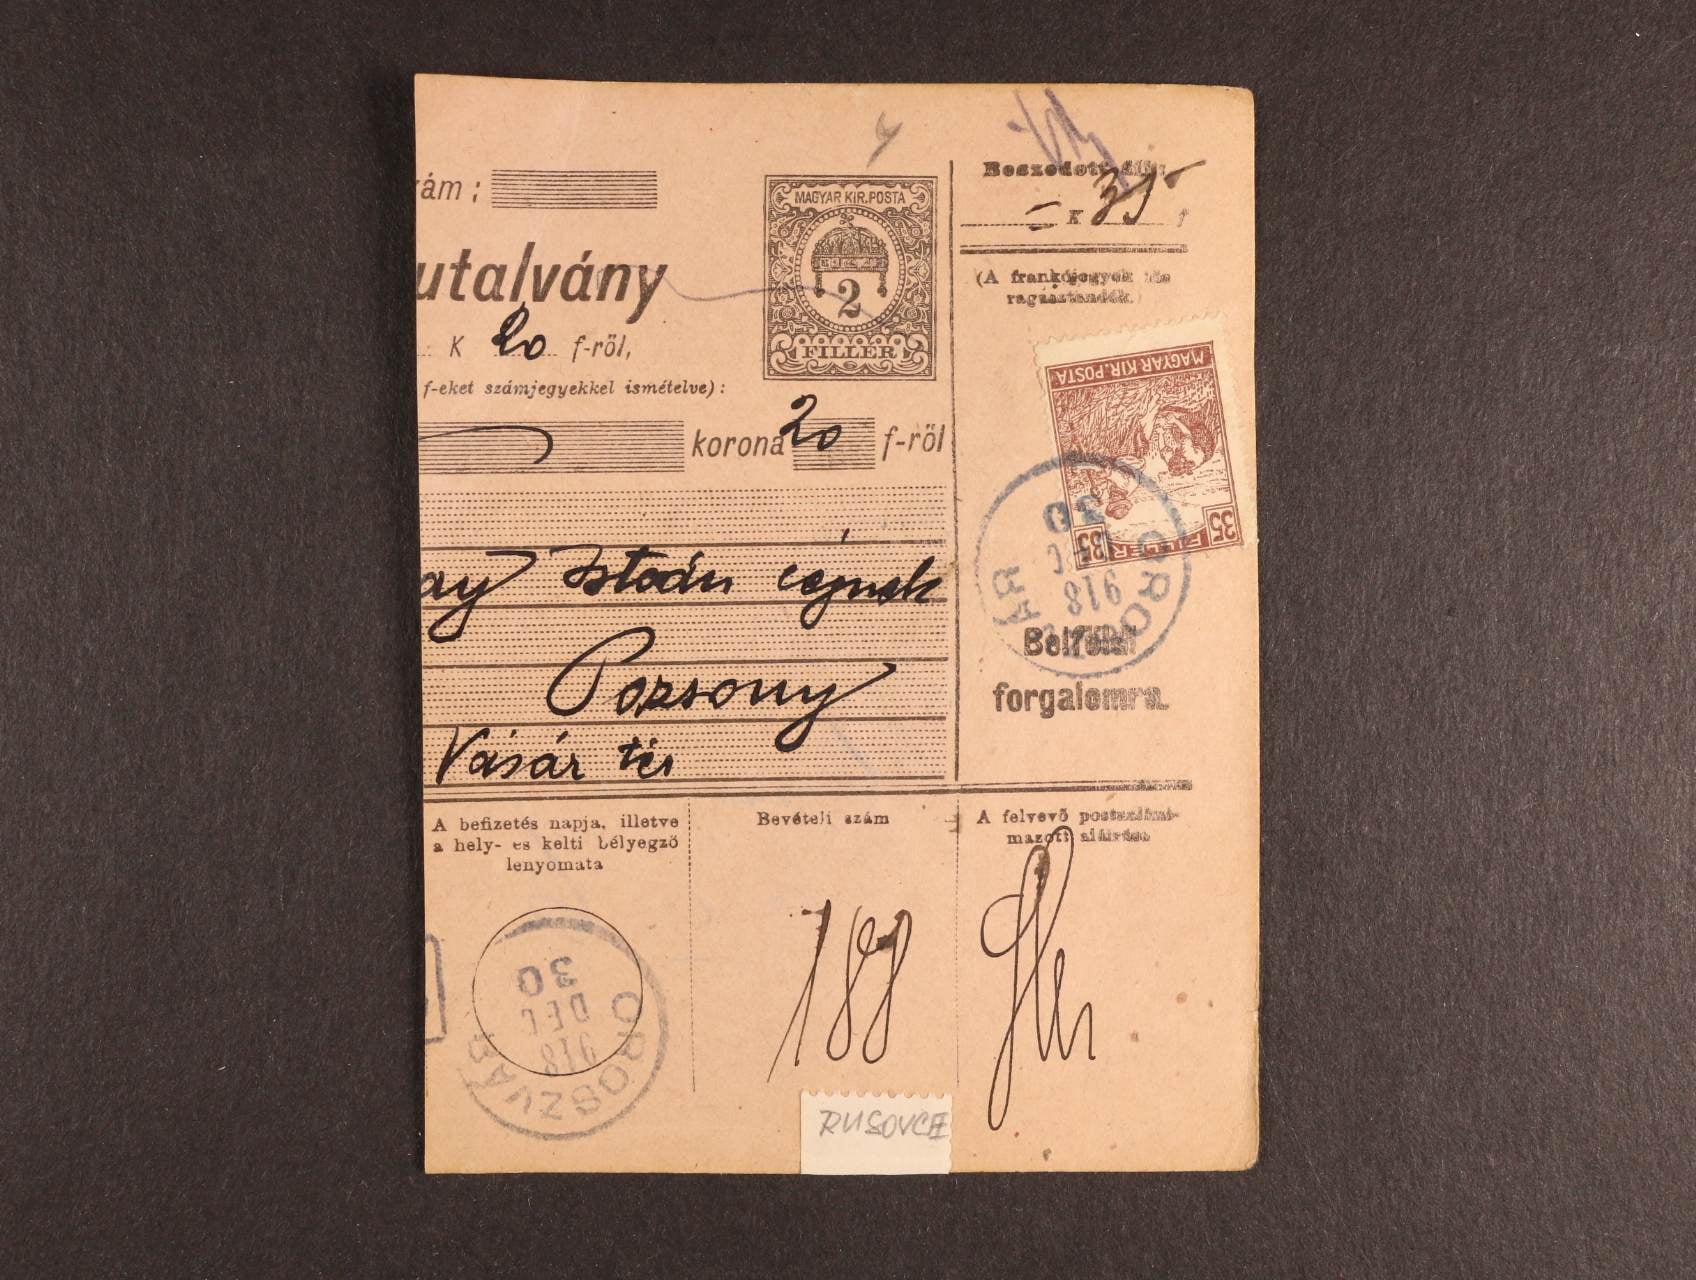 ám :
MAGYAR KIR. POSTA
2
FILLÉR
utalvány
K 20 f-ről,
f-eket számjegyekkel ismételve) :
korona 20 f-ről
István cégnek
Pozsony
Vásár tér
Beszedett díj:
K 35 f
(A frankójegyek ide
ragasztandók.)
MAGYAR KIR. POSTA
35 FILLÉR 35
OROSZVÁR
918
DEC
30
Belföldi
forgalomra.
A befizetés napja, illetve
a hely- és kelti bélyegző
lenyomata
Bevételi szám
A felvevő postaalkal-
mazott aláírása
188
OROSZVÁR
918
DEC
30
RUSOVCE